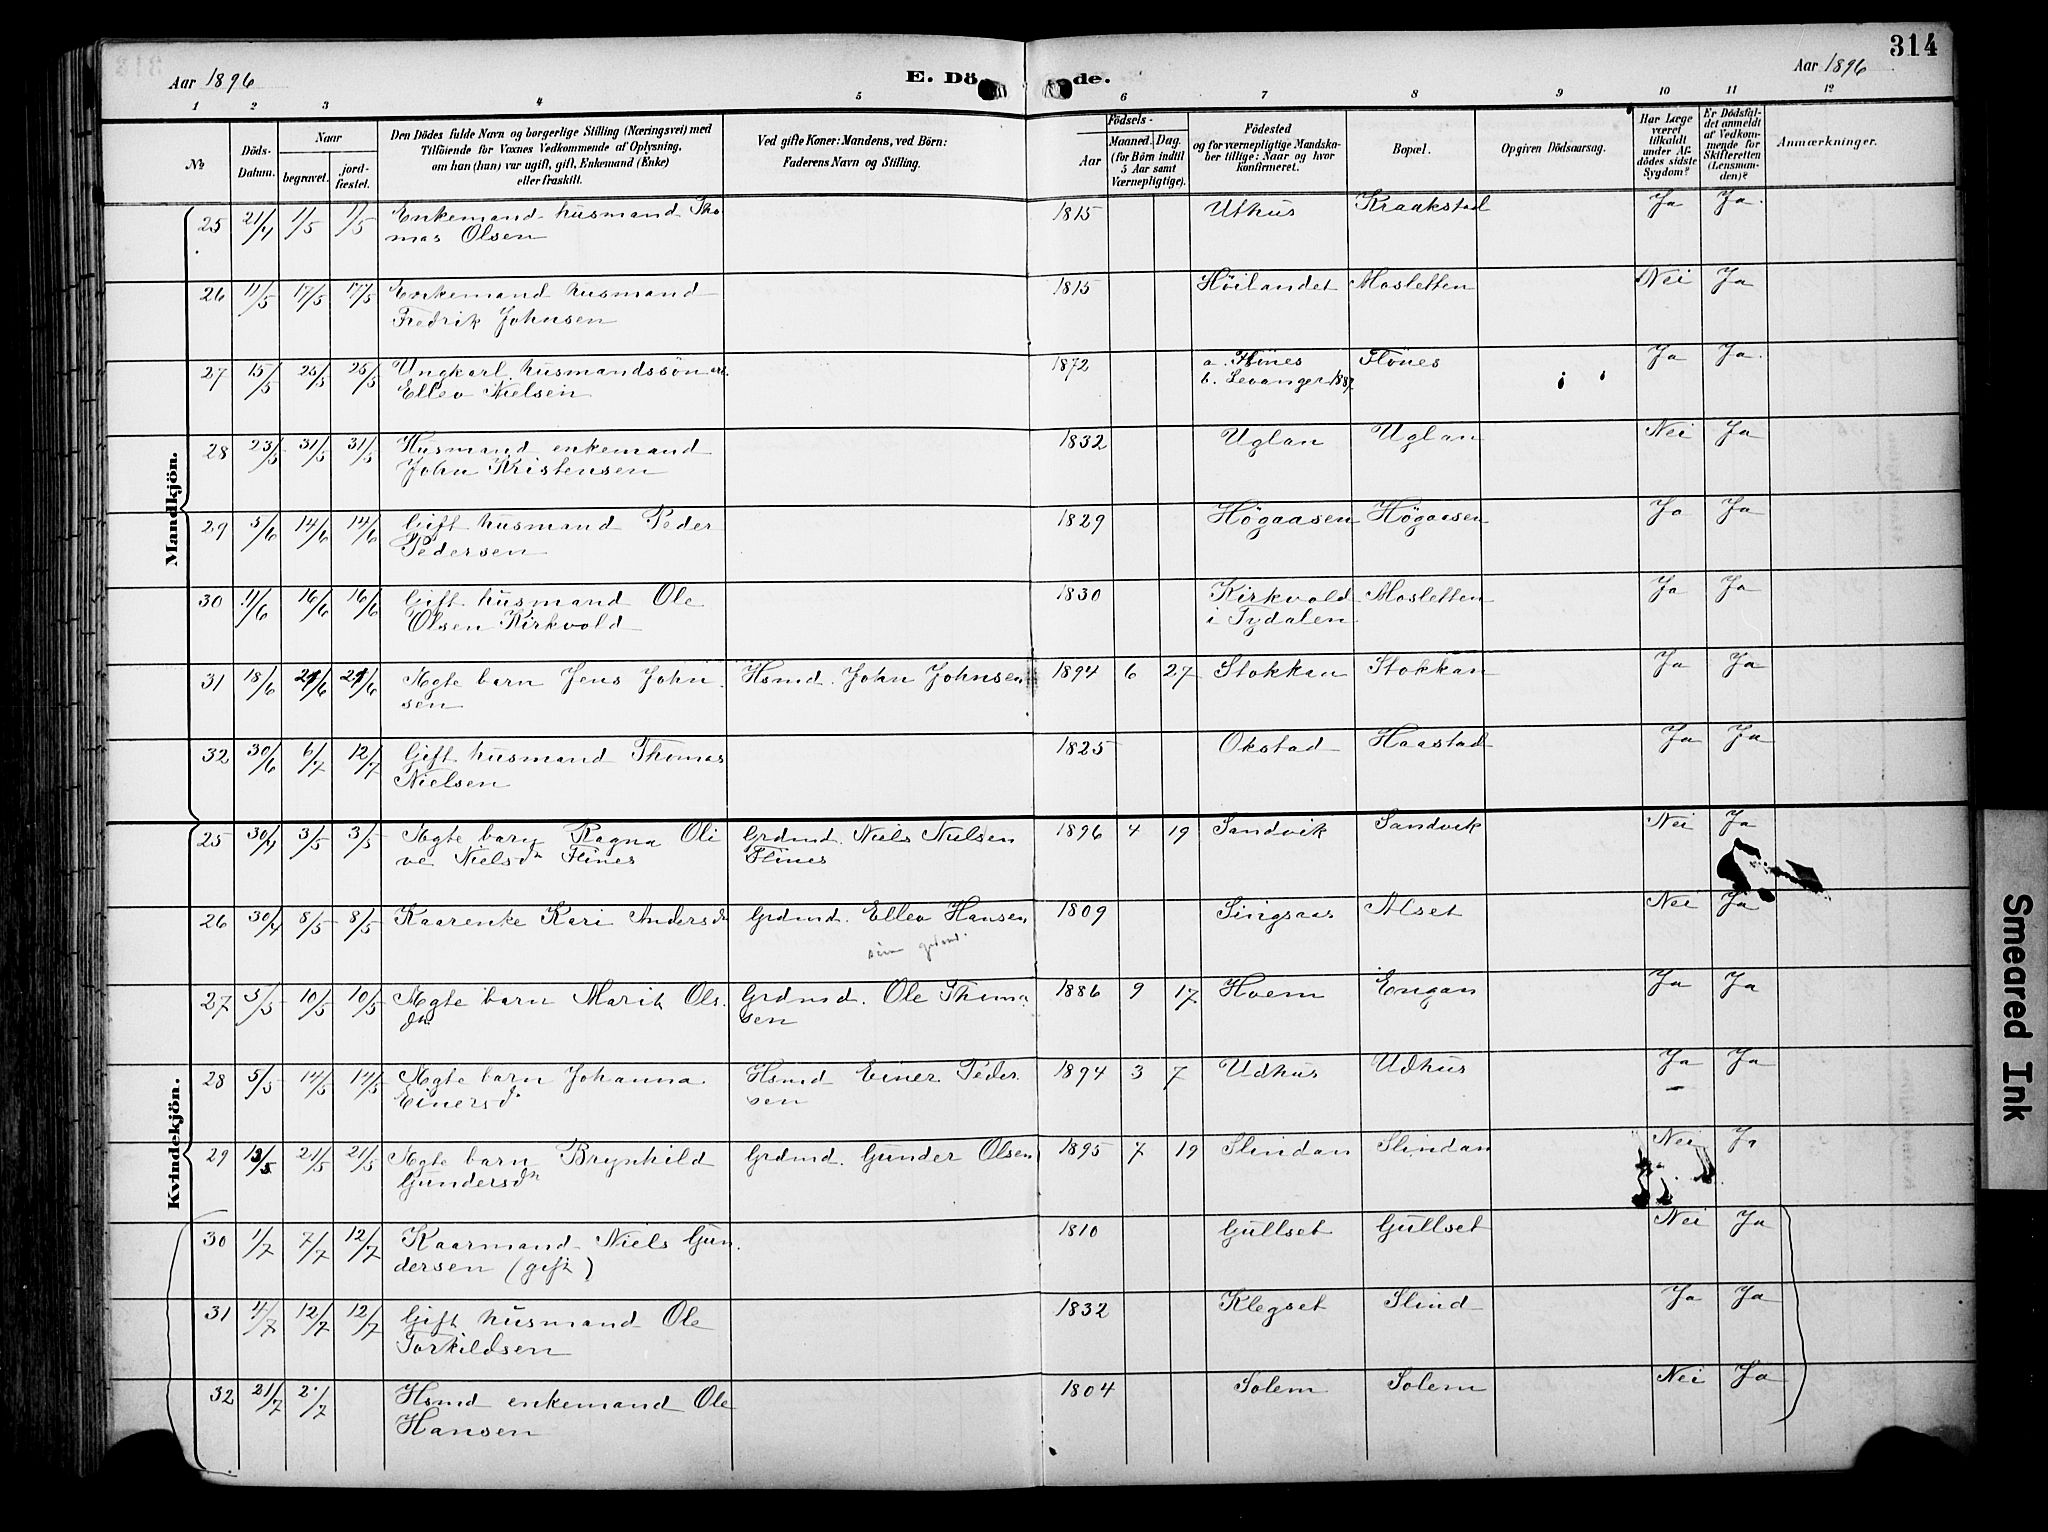 314
Aar 1896
E. Dö de.
Aar 1896
1 2 3 4 5 6 7 8 9 10 11 12
No
Döds-Datum.
Naar
begravet.
jord-fæstet.
Den Dödes fulde Navn og borgerlige Stilling (Næringsvei) med
Tilföiende for Voxnes Vedkommende af Oplysning,
om han (hun) var ugift, gift, Enkemand (Enke)
eller fraskilt.
Ved gifte Koner: Mandens, ved Börn:
Faderens Navn og Stilling.
Födsels-
Aar
Maaned. Dag.
(for Börn indtil
5 Aar samt
Værnepligtige).
Födested
og for værnepligtige Mandska-
ber tillige: Naar og hvor
konfirmeret.
Bopæl.
Opgiven Dödsaarsag.
Har Læge
været
tilkaldt
under Af-
dödes sidste
Sygdom?
Er Dödsfal-
det anmeldt
af Vedkom-
mende for
Skifteretten
(Lensman-
den)?
Anmærkninger.
Mandkjön.
25 21/4 1/5 1/5 Enkemand husmand Tho 1815 Uthus Kraakstad Ja Ja.
mas Olsen
26 11/5 17/5 17/5 Enkemand husmand 1815 Höilandet Mosletten Nei Ja
Fredrik Johnsen
27 15/5 25/5 25/5 Ungkarl husmandssön 1872 a. Flönes Flönes Ja Ja.
Ellev Nielsen b. Levanger 1887
28 23/5 31/5 31/5 Husmand enkemand 1832 Uglan Uglan Nei Ja
John Kristensen
29 5/6 14/6 14/6 Gift husmand Peder 1829 Högaasen Högaasen Ja Ja
Pedersen
30 11/6 16/6 16/6 Gift husmand Ole 1830 Kirkvold Mosletten Ja Ja
Olsen Kirkvold i Tydalen
31 18/6 29/6 29/6 Ægte barn Jens John Hsmd. John Johnsen 1894 6 27 Stokkan Stokkan Ja Ja
sen
32 30/6 6/7 12/7 Gift husmand Thomas 1825 Okstad Haastad Ja Ja
Nielsen
Kvindekjön.
25 30/4 3/5 3/5 Ægte barn Ragna Oli Grdmd. Niels Nielsen 1896 4 19 Sandvik Sandvik Nei Ja
ve Nielsdtr Flines Flines
26 30/4 8/5 8/5 Kaarenke Kari Andersdtr Grdmd. Ellev Hansen 1809 Singsaas Alset Nei Ja
27 5/5 10/5 10/5 Ægte barn Marit Ols Grdmd. Ole Thoma 1886 9 17 Hoem Engan Ja Ja
dtr. sen
28 5/5 14/5 14/5 Ægte barn Johanna Hsmd Einer Peder 1894 3 7 Udhus Udhus Ja Ja
Einersdtr sen
29 13/5 21/5 21/5 Ægte barn Brynhild Grdmd. Gunder Olsen 1895 7 19 Slindan Slindan Nei Ja
Gundersdtr
30 1/7 7/7 12/7 Kaarmand Niels Gun 1810 Gullset Gullset Nei Ja
dersen (gift)
31 4/7 12/7 12/7 Gift husmand Ole 1832 Klegset Slind Ja Ja
Torkildsen
32 21/7 Hsmd enkemand Ole 1804 Solem Solem Nei Ja
Hansen
Smeared Ink